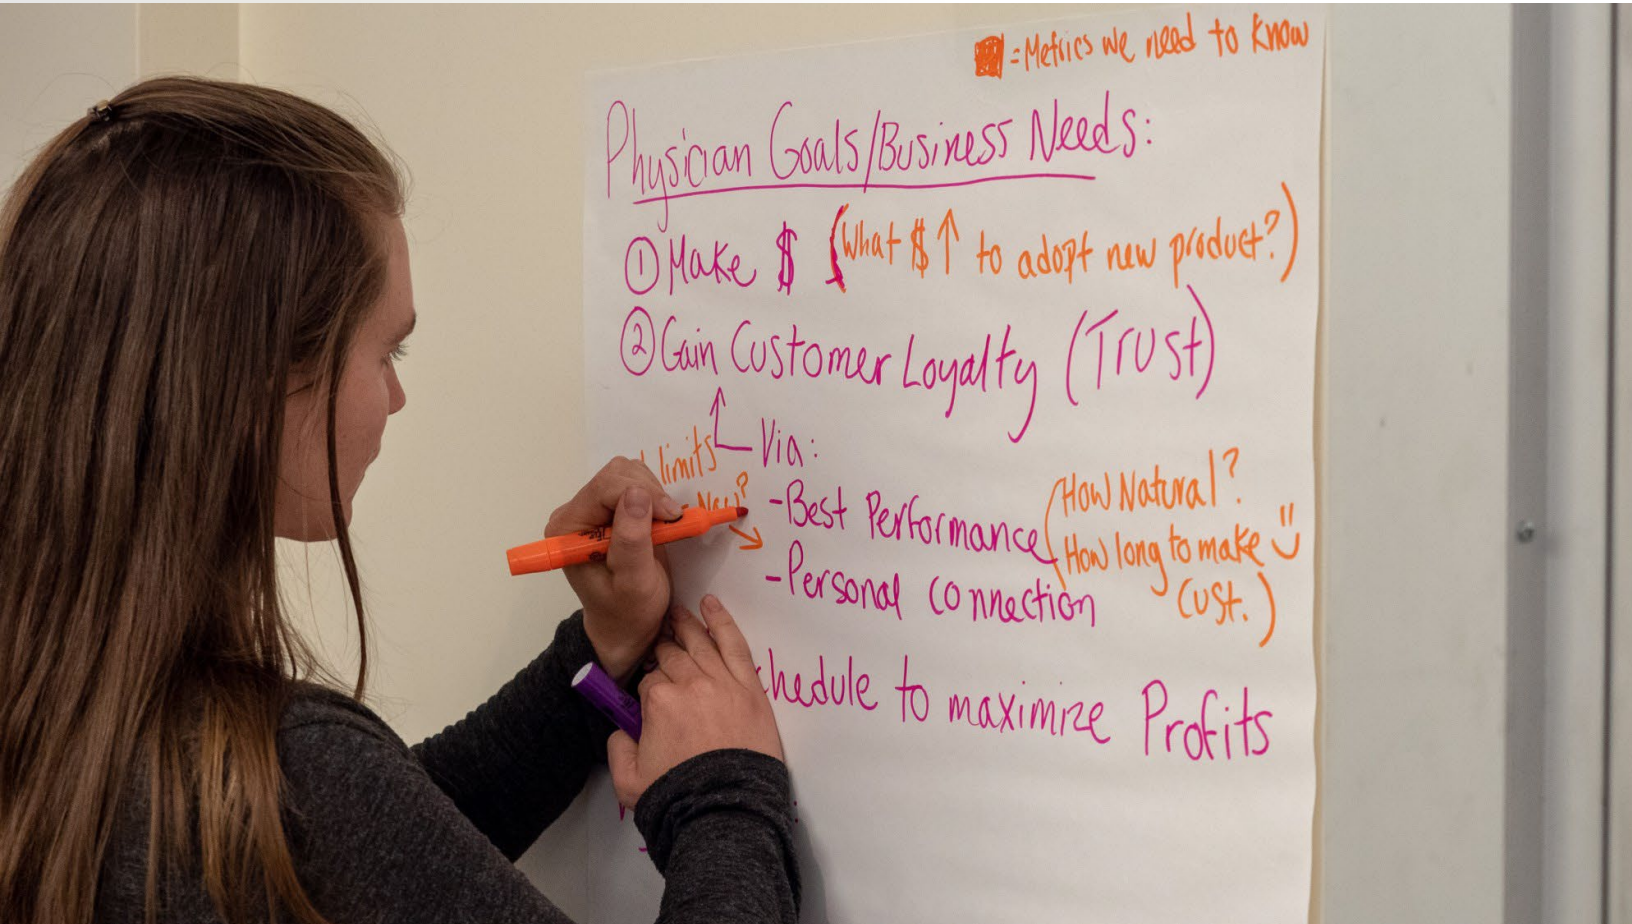 = Metrics we need to know
Physician Goals/Business Needs:
① Make $ (What $↑ to adopt new product?)
② Gain Customer Loyalty (Trust)
limits
Via:
New?
-Best Performance
(How Natural?
How long to make
Cust.)
-Personal connection
to maximize Profits